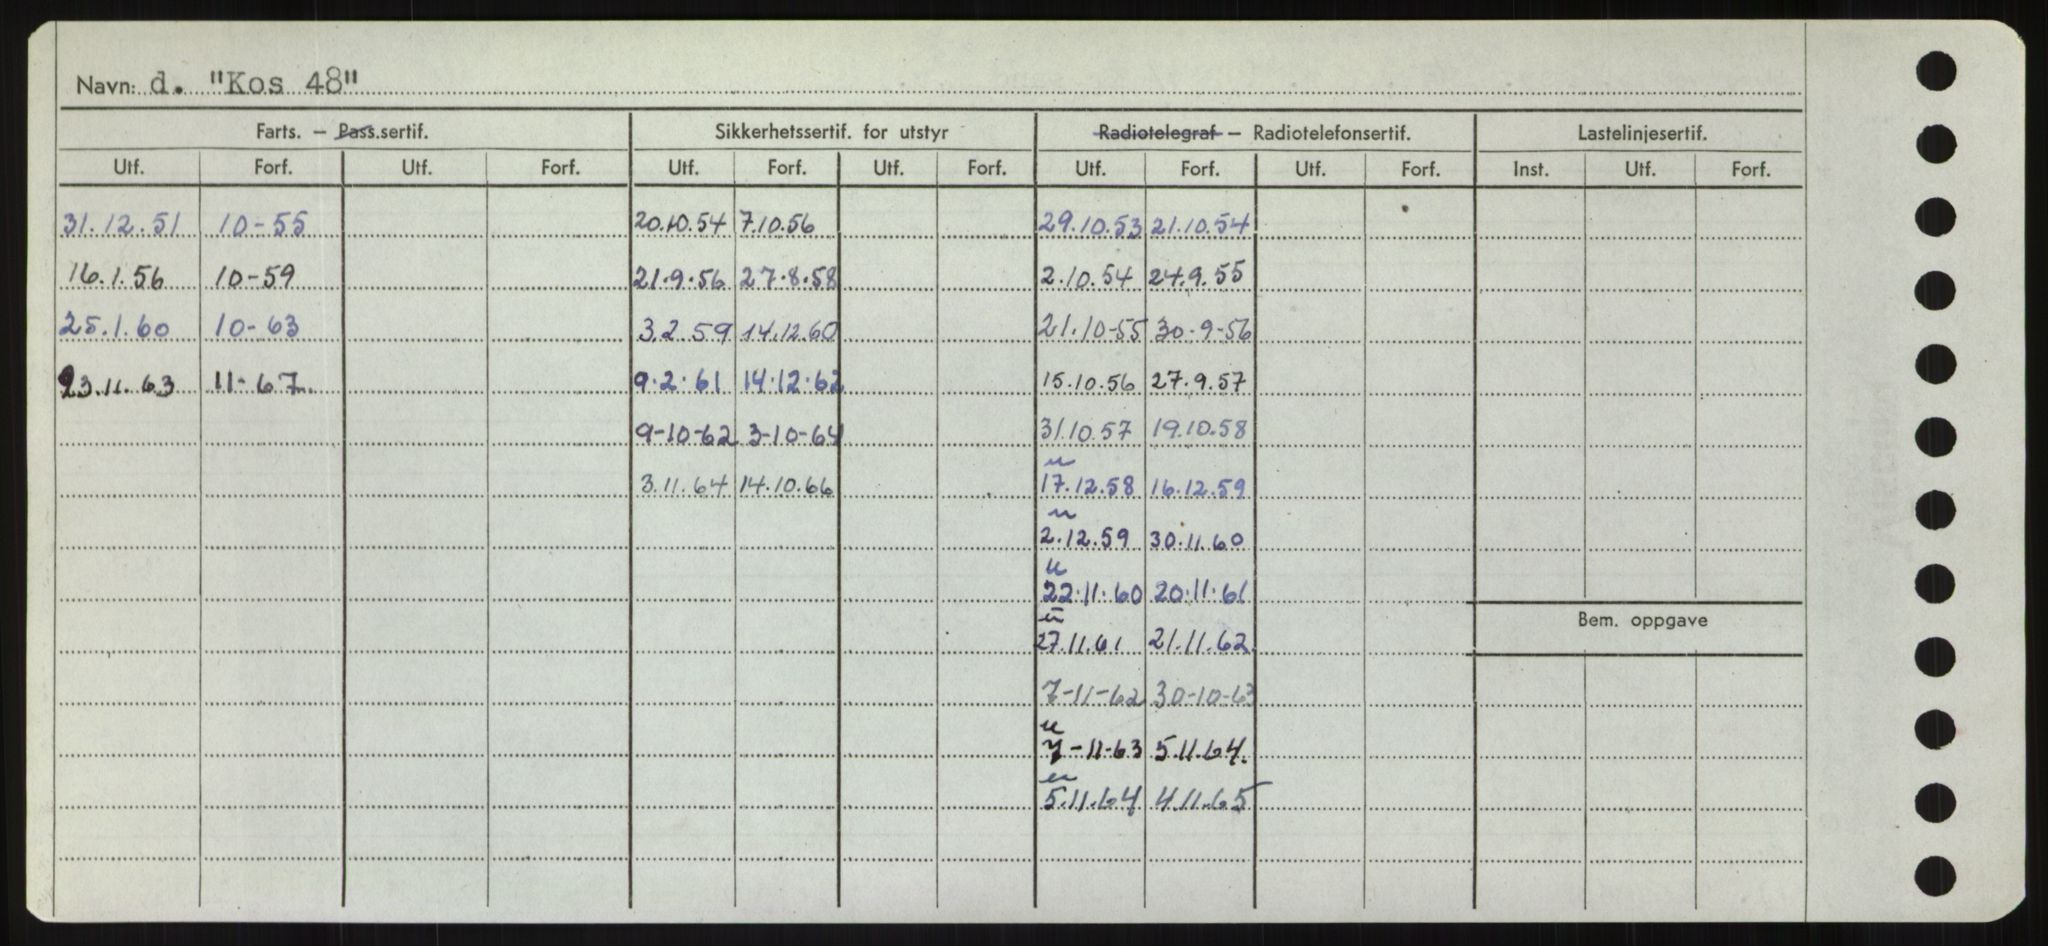 Navn: d. "Kos 48"
Farts. – Pass.sertif. Sikkerhetssertif. for utstyr Radiotelegraf – Radiotelefonsertif. Lastelinjesertif.
Utf. Forf. Utf. Forf. Utf. Forf. Utf. Forf. Utf. Forf. Utf. Forf. Inst. Utf. Forf.
31.12.51 10-55 20.10.54 7.10.56 29.10.53 21.10.54
16.1.56 10-59 21.9.56 27.8.58 2.10.54 24.9.55
25.1.60 10-63 3.2.59 14.12.60 21.10-55 30.9-56
23.11.63 11-67. 9.2.61 14.12.62 15.10.56 27.9.57
9-10-62 3-10-64 31.10.57 19.10.58
u
3.11.64 14.10.66 17.12.58 16.12.59
u
2.12.59 30.11.60
u
22.11.60 20.11.61
u
Bem. oppgave
27.11.61 21.11.62
7-11-62 30-10-63
u
7-11-63 5.11.64.
u
5.11.64 4.11.65